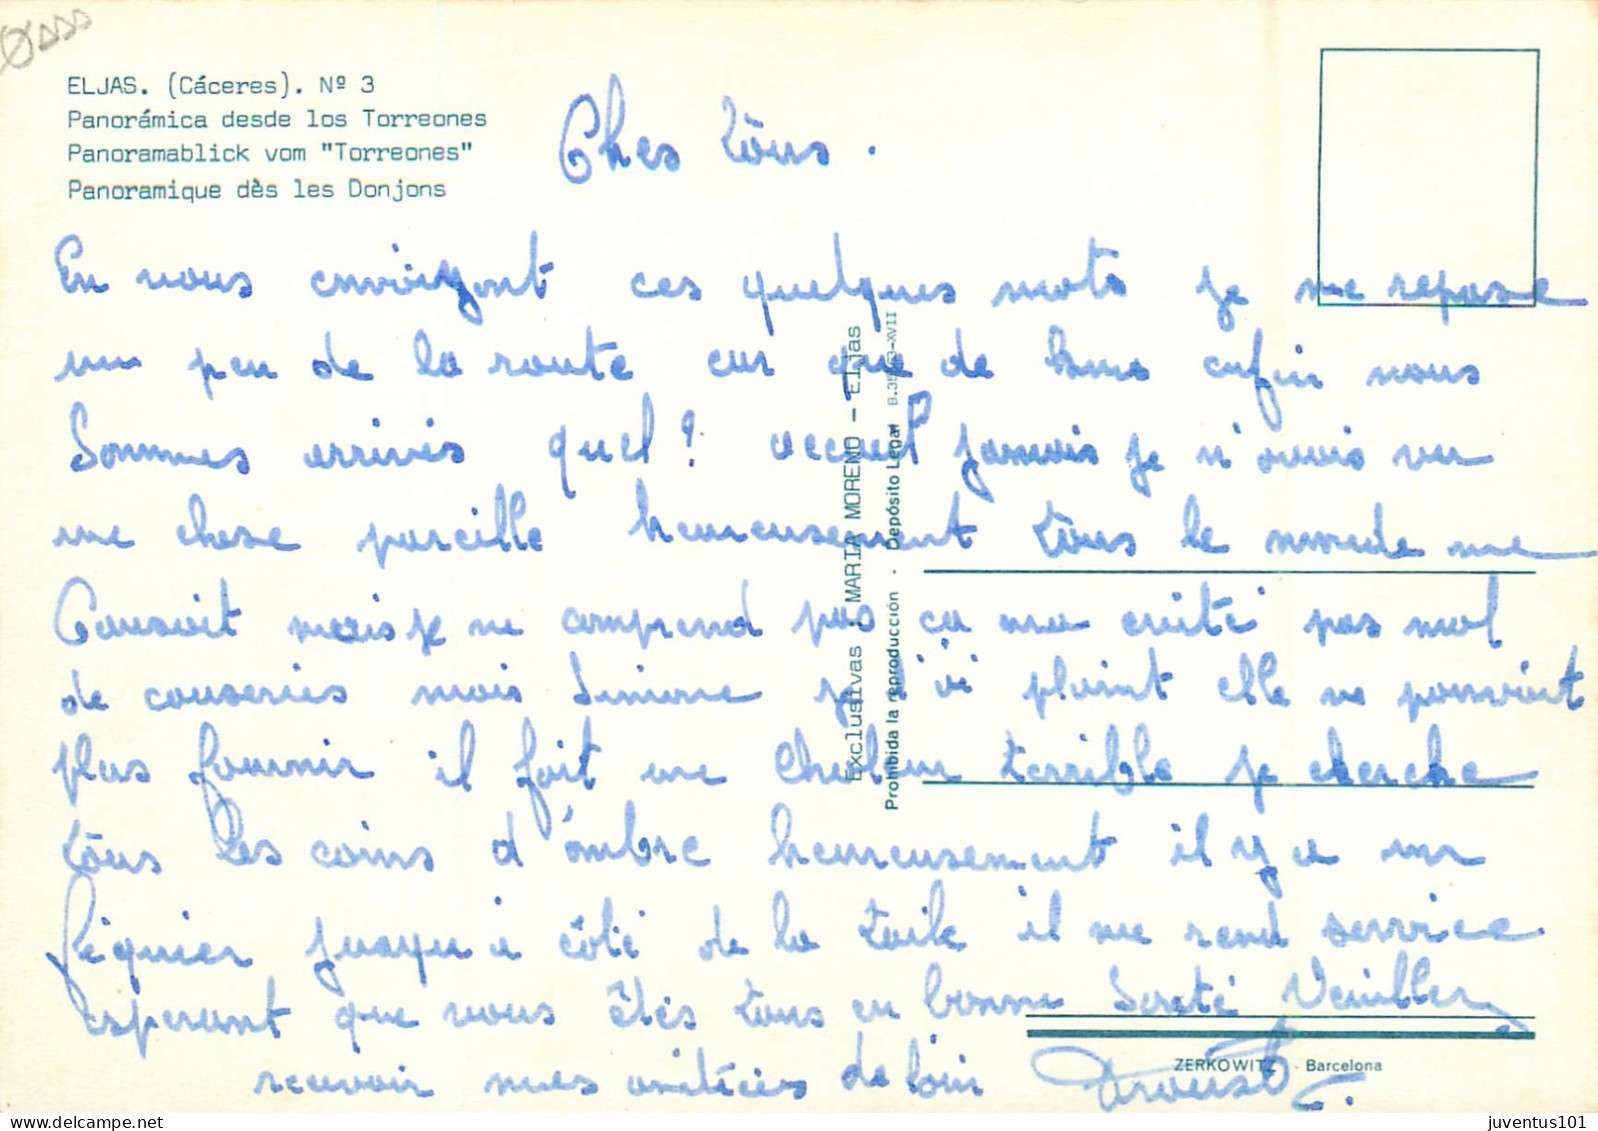 ELJAS. (Cáceres). Nº 3
Panorámica desde los Torreones
Panoramablick vom "Torreones"
Panoramique dès les Donjons
Ches tōus.
En vous envoiyant ces quelques mots je me repose
un peu de la route car que de enfin nous
Sommes arrivés quel! accueil jamais je n'avais vu
une chose pareille heureusement tōus le monde me
Causait mais je ne comprend pas ça ma évité pas mal
de causeries mais Simone je l'ai plaint elle ne pouvait
plus fournir il fait une Chaleur terrible je cherche
tōus les coins d'ombre heureusement il y a un
figuier jusqu'a côté de la toile il me rend service
esperant que vous êtes tous en bonne Santé Veuiller
recevoir mes amitiés de loin
Exclusivas : MARIA MORENO - Eljas
Prohibida la reproducción - Depósito Legal B.
ZERKOWITZ - Barcelona
juventus101